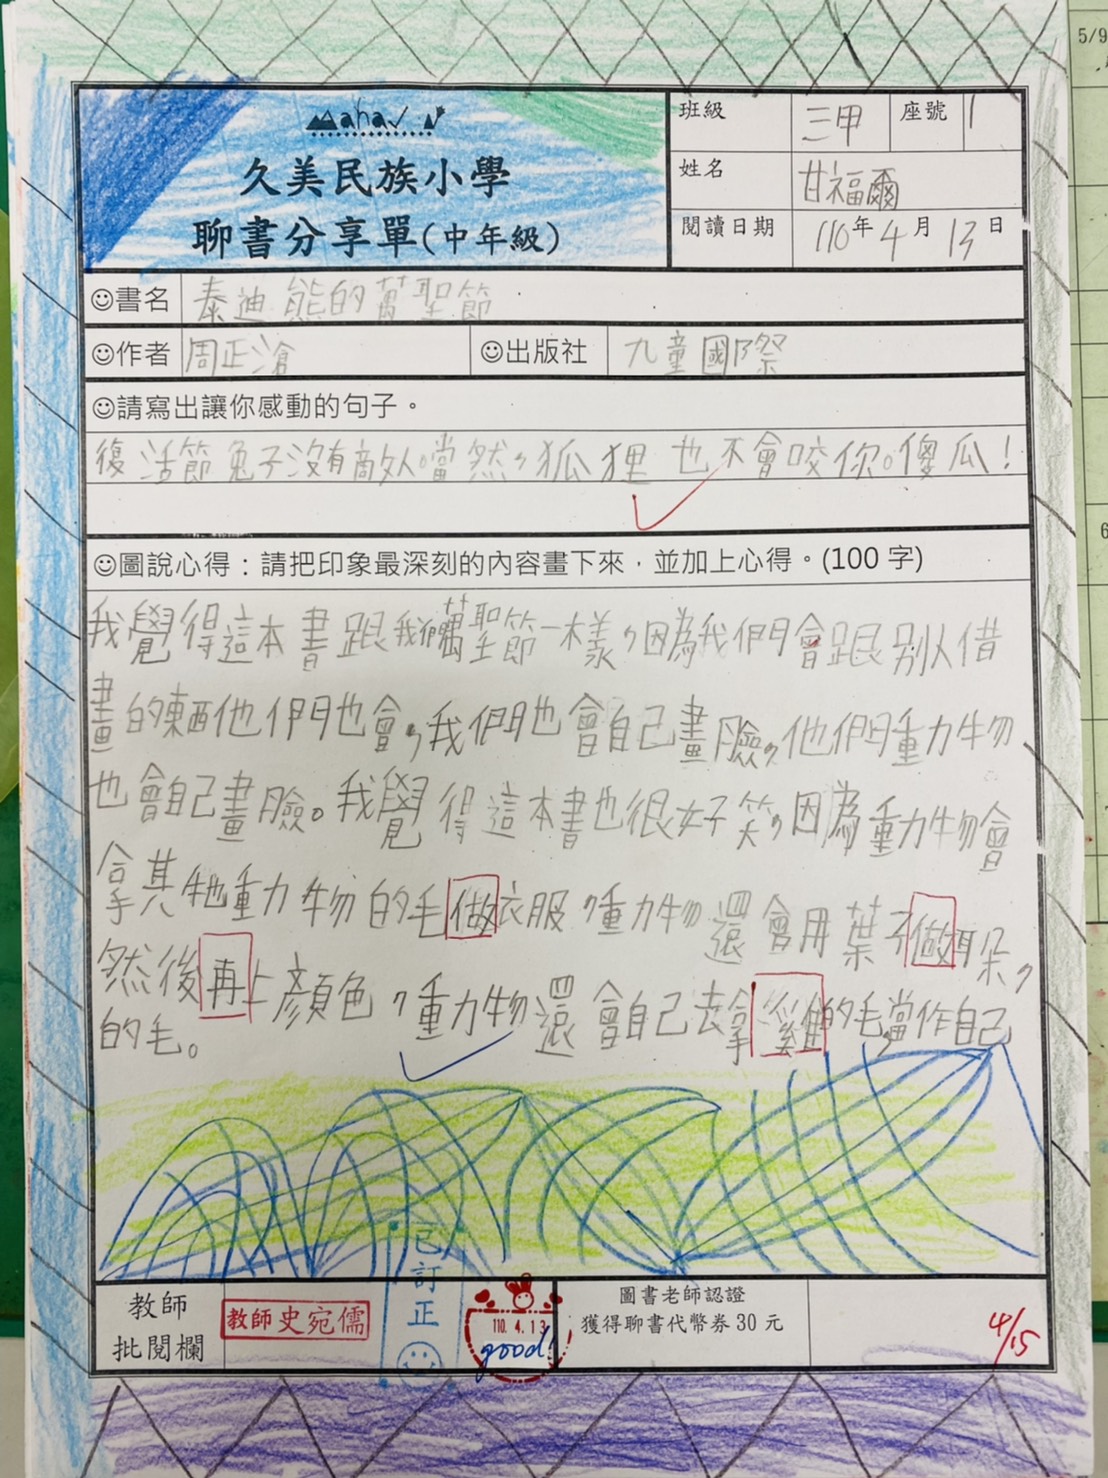 Mahav
久美民族小學
聊書分享單(中年級)
班級 三甲 座號 1
姓名 甘福爾
閱讀日期 110年4月13日
☺書名 泰迪熊的萬聖節
☺作者 周正滄 ☺出版社 九童國際
☺請寫出讓你感動的句子。
復活節兔子沒有敵人噹然,狐狸也不會咬你。傻瓜!
☺圖說心得:請把印象最深刻的內容畫下來,並加上心得。(100字)
我覺得這本書跟我們萬聖節一樣,因為我們會跟別人借
畫的東西他們也會,我們也會自己畫臉,他們動物
也會自己畫臉。我覺得這本書也很好笑,因為動物會
拿其牠動物的毛做衣服,動物還會用葉子做耳朵,
然後再上顏色,動物還會自己去拿雞的毛,當作自己
的毛。
教師
批閱欄
教師史宛儒
已訂正
110. 4. 13
good!
圖書老師認證
獲得聊書代幣券30元
4/15
5/9
6